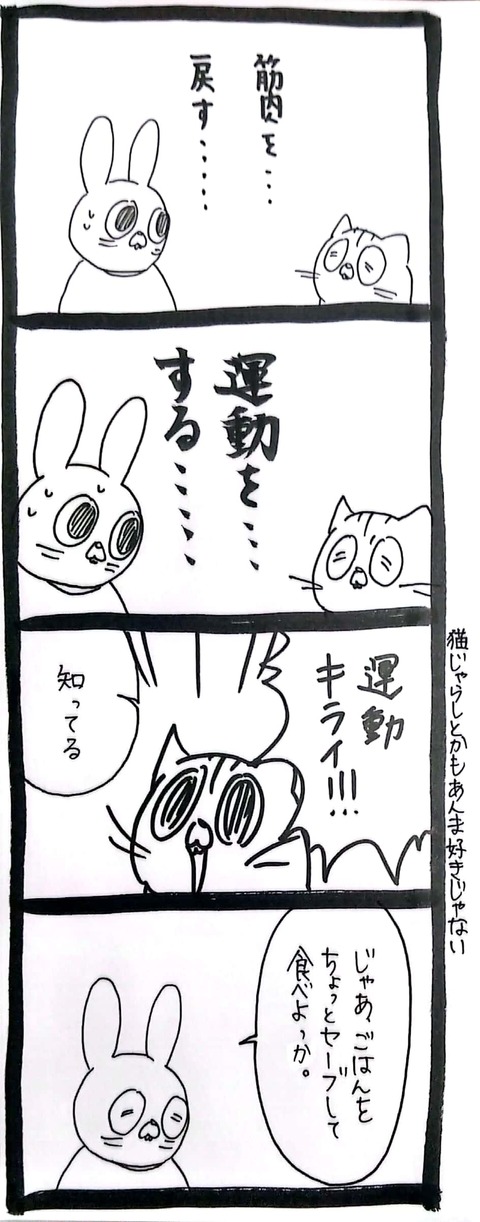 筋肉を…
戻す……
運動を……
する……
運動
キライ!!!
知ってる
猫じゃらしとかもあんま好きじゃない
じゃあ、ごはんを
ちょっとセーブして
食べよっか。